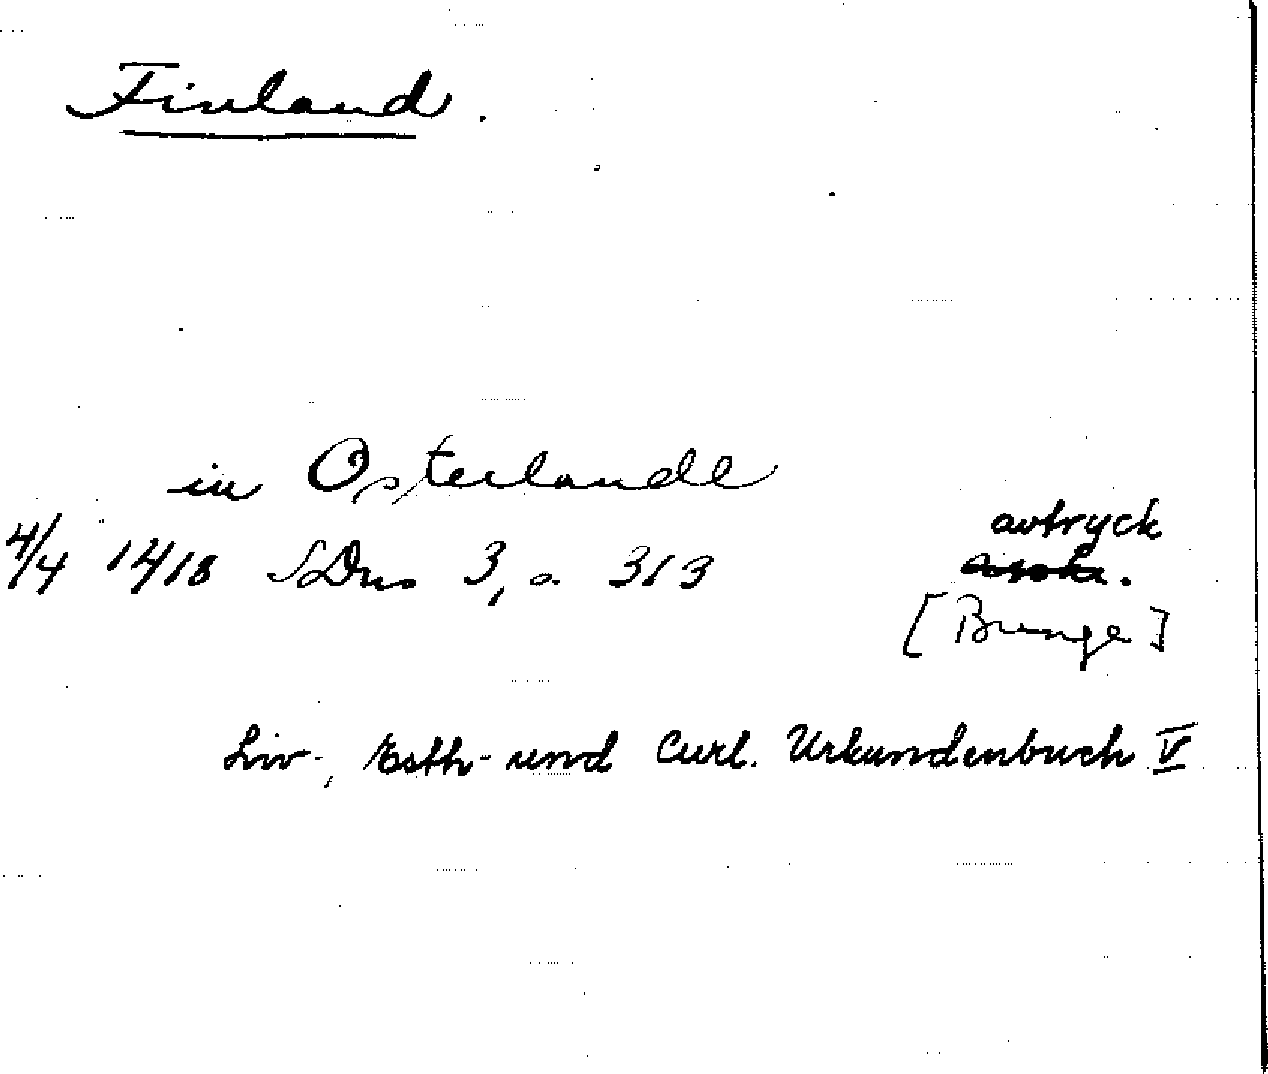 Finland.
in Osterlande
4/4 1418 SDns 3, s. 313
avtryck
[Bunge]
Liv-, Esth- und Curl. Urkundenbuch V